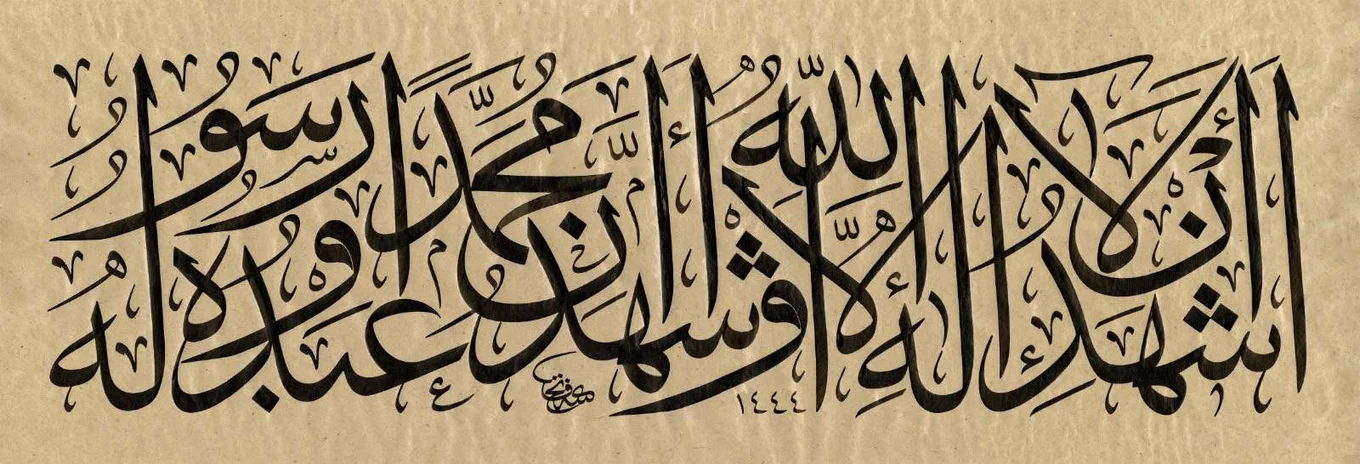 أشهد أن لا إله إلا الله وأشهد أن محمدا عبده ورسوله
١٤٤٤